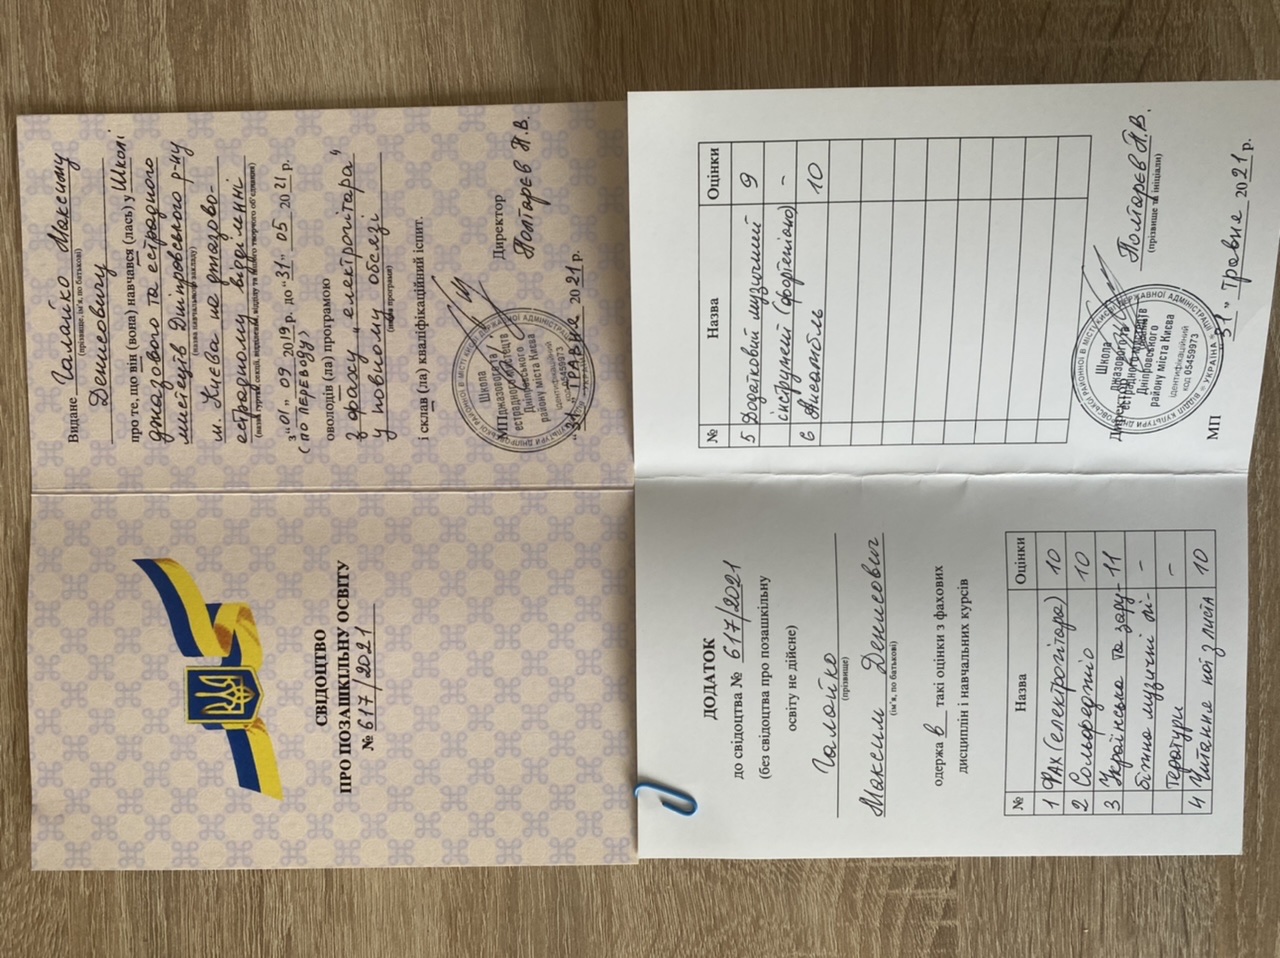 СВІДОЦТВО
ПРО ПОЗАШКІЛЬНУ ОСВІТУ
№ 617/2021
Видане Галайко Максиму
(прізвище, ім'я, по батькові)
Денисовичу
про те, що він (вона) навчався (лась) у Школі
джазового та естрадного
мистецтв Дніпровського р-ну
(назва навчального закладу)
м. Києва на джазово-
естрадному відділенні
(назва гуртка, секції, відділення, відділу та іншого творчого об'єднання)
з "01" 09 2019 р. до "31" 05 2021 р.
(по переводу)
оволодів (ла) програмою
з фаху „електрогітара"
у повному обсязі
(назва програми)
і склав (ла) кваліфікаційний іспит.
Директор
МП
Полтарєв П.В.
"31" травня 2021 р.
Школа
джазового та
естрадного мистецтв
Дніпровського
району міста Києва
ідентифікаційний
код 05459973
ДОДАТОК
до свідоцтва № 617/2021
(без свідоцтва про позашкільну
освіту не дійсне)
Галайко
(прізвище)
Максим Денисович
(ім'я, по батькові)
одержав такі оцінки з фахових
дисциплін і навчальних курсів
№ Назва Оцінки
1 Фах (електрогітара) 10
2 Сольфеджіо 10
3 Українська та зару- 11
біжна музичні лі- -
тератури -
4 Читання нот з листа 10
№ Назва Оцінки
5 Додатковий музичний 9
інструмент (фортепіано) -
6 Ансамбль 10
Директор Полтарєв П.В.
(прізвище та ініціали)
МП "31" травня 2021 р.
Школа
джазового та
естрадного мистецтв
Дніпровського
району міста Києва
ідентифікаційний
код 05459973